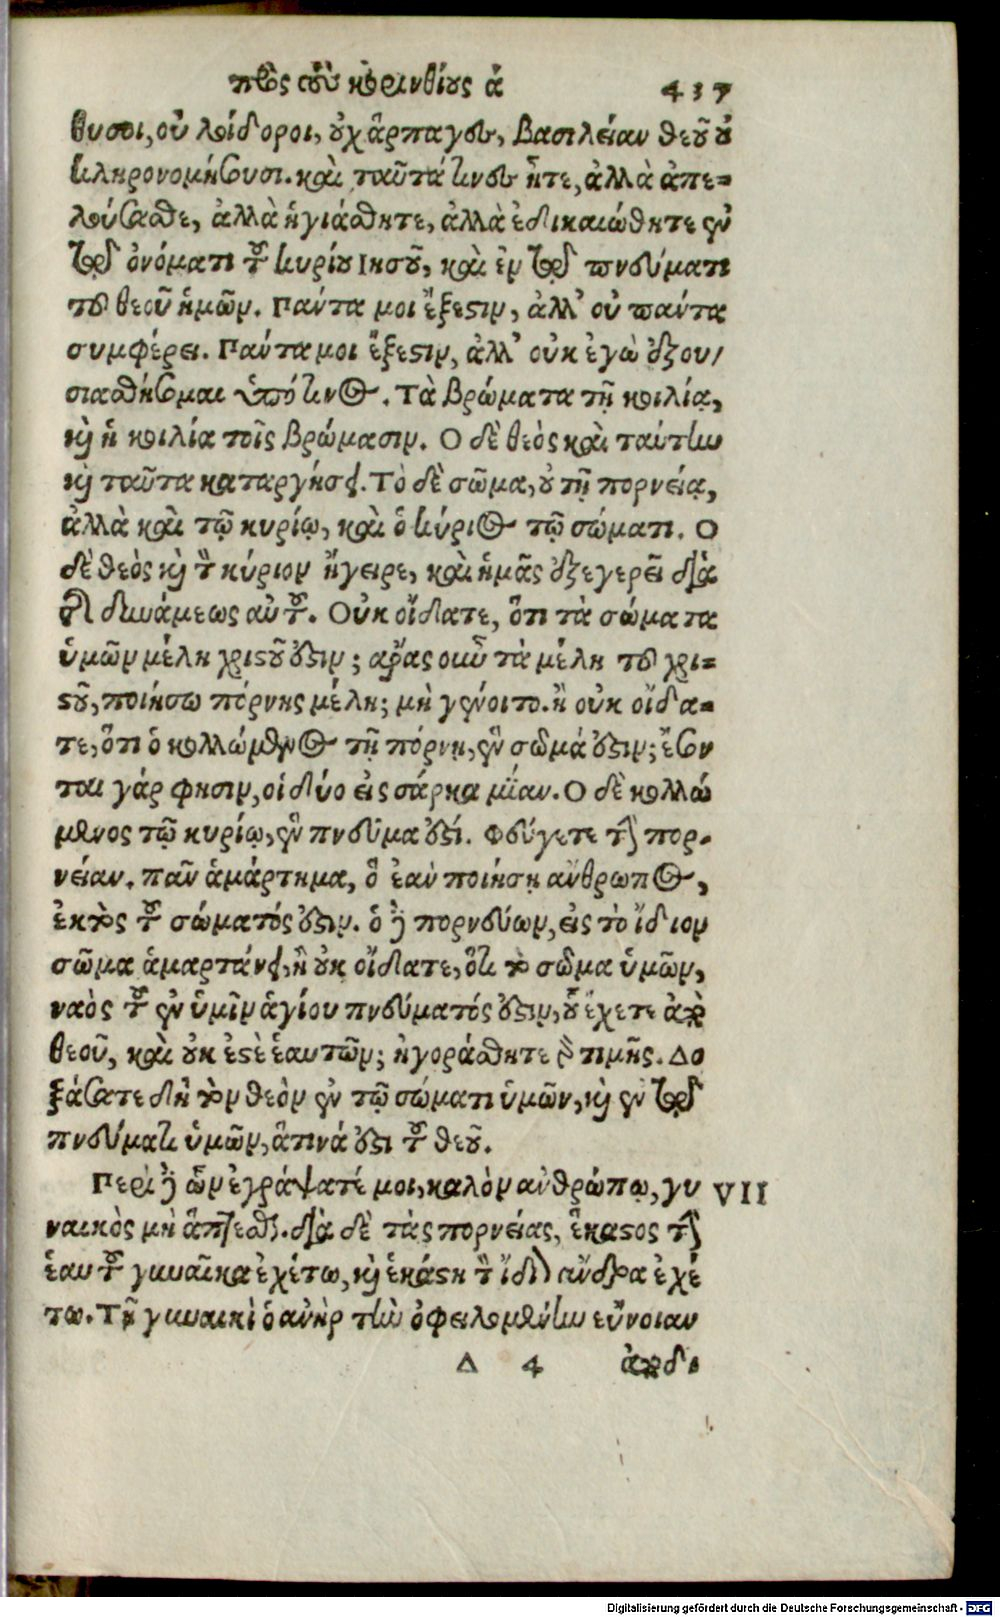 πρὸς τοὺς κορινθίους ά 437
θυσοι, οὐ λοίδοροι, οὐχ ἅρπαγες, βασιλείαν θεοῦ οὐ
κληρονομήσουσι. καὶ ταῦτά τινες ἦτε, ἀλλὰ ἀπε-
λούσασθε, ἀλλὰ ἡγιάσθητε, ἀλλὰ ἐδικαιώθητε ἐν
τῷ ὀνόματι τοῦ κυρίου Ιησοῦ, καὶ ἐν τῷ πνεύματι
τοῦ θεοῦ ἡμῶν. Πάντα μοι ἔξεστιν, ἀλλ’ οὐ πάντα
συμφέρει. Πάντα μοι ἔξεστιν, ἀλλ’ οὐκ ἐγὼ ἐξου/
σιασθήσομαι ὑπό τινος. Τὰ βρώματα τῇ κοιλίᾳ,
καὶ ἡ κοιλία τοῖς βρώμασιν. Ο δὲ θεὸς καὶ ταύτην
καὶ ταῦτα καταργήσει. Τὸ δὲ σῶμα, οὐ τῇ πορνείᾳ,
ἀλλὰ καὶ τῷ κυρίῳ, καὶ ὁ κύριος τῷ σώματι. Ο
δὲ θεὸς καὶ τὸν κύριον ἤγειρε, καὶ ἡμᾶς ἐξεγερεῖ διὰ
τῆς δυνάμεως αὐτοῦ. Οὐκ οἴδατε, ὅτι τὰ σώματα
ὑμῶν μέλη χριστοῦ ἐστιν; ἄρας οὖν τὰ μέλη τοῦ χρι-
στοῦ, ποιήσω πόρνης μέλη; μὴ γένοιτο. ἢ οὐκ οἴδα-
τε, ὅτι ὁ κολλώμενος τῇ πόρνῃ, ἓν σῶμά ἐστιν; ἔσον
ται γάρ φησιν, οἱ δύο εἰς σάρκα μίαν. Ο δὲ κολλώ
μενος τῷ κυρίῳ, ἓν πνεῦμα ἐστί. Φεύγετε τὴν πορ-
νείαν. πᾶν ἁμάρτημα, ὃ ἐὰν ποιήσῃ ἄνθρωπος,
ἐκτὸς τοῦ σώματός ἐστιν. ὁ δὲ πορνεύων, εἰς τὸ ἴδιον
σῶμα ἁμαρτάνει, ἢ οὐκ οἴδατε, ὅτι τὸ σῶμα ὑμῶν,
ναὸς τοῦ ἐν ὑμῖν ἁγίου πνεύματός ἐστιν, οὗ ἔχετε ἀπὸ
θεοῦ, καὶ οὐκ ἐστὲ ἑαυτῶν; ἠγοράσθητε γὰρ τιμῆς. Δο
ξάσατε δὴ τὸν θεὸν ἐν τῷ σώματι ὑμῶν, καὶ ἐν τῷ
πνεύματι ὑμῶν, ἅτινά ἐστι τοῦ θεοῦ.
Περὶ δὲ ὧν ἐγράψατέ μοι, καλὸν ἀνθρώπῳ, γυ VII
ναικὸς μὴ ἅπτεσθαι. διὰ δὲ τὰς πορνείας, ἕκαστος τὴν
ἑαυτοῦ γυναῖκα ἐχέτω, καὶ ἑκάστη τὸν ἴδιον ἄνδρα ἐχέ
τω. Τῇ γυναικὶ ὁ ἀνὴρ τὴν ὀφειλομένην εὔνοιαν
Δ 4 ἀποδι
Digitalisierung gefördert durch die Deutsche Forschungsgemeinschaft - DFG